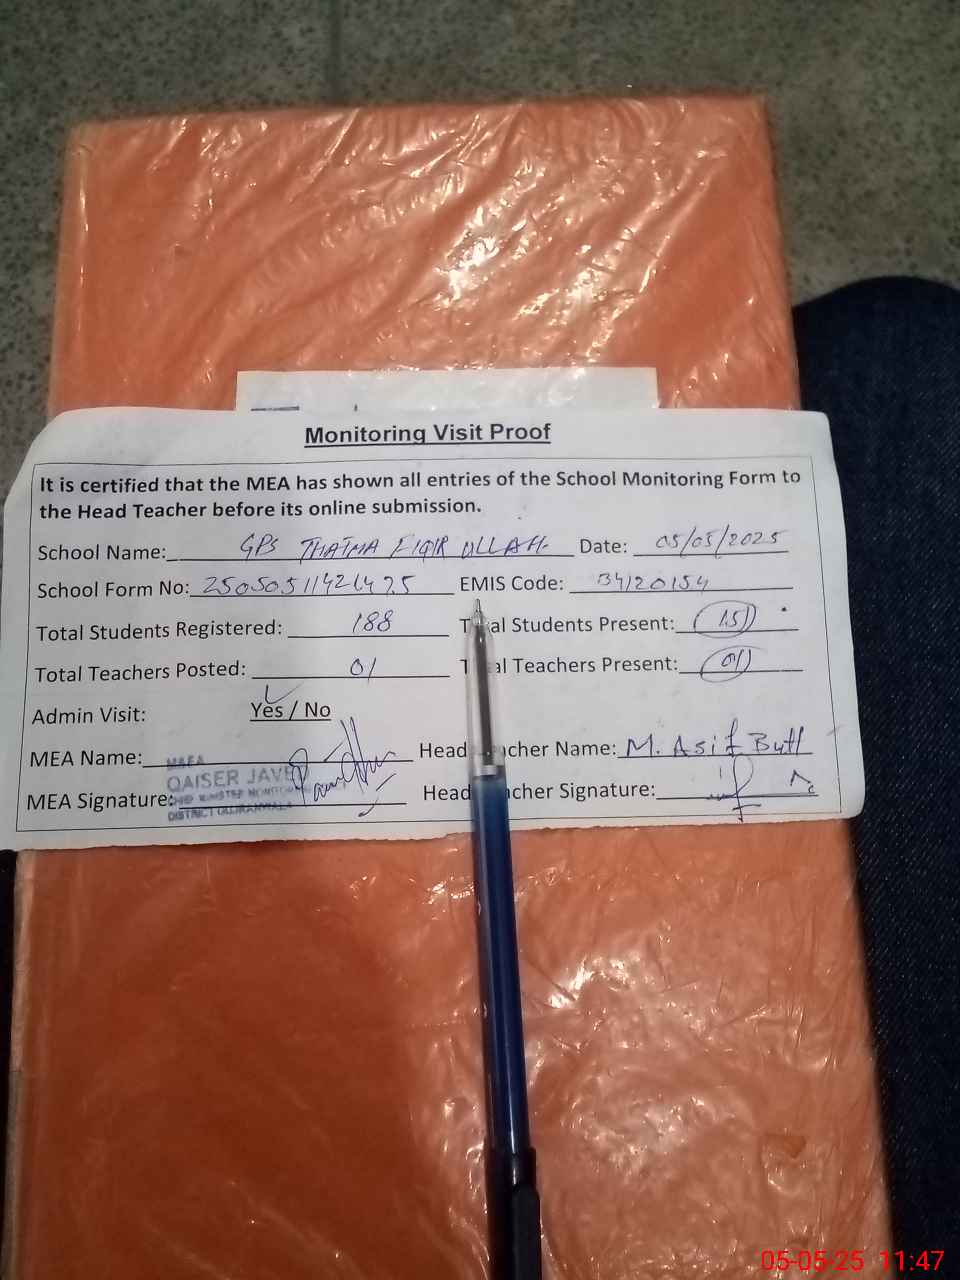 Monitoring Visit Proof
It is certified that the MEA has shown all entries of the School Monitoring Form to
the Head Teacher before its online submission.
School Name: GPS THATHA FIQIR ULLAH Date: 05/05/2025
School Form No: EMIS Code: 34120154
Total Students Registered: 188 T al Students Present: 151
Total Teachers Posted: 01 T al Teachers Present: 01
Admin Visit: Yes / No
MEA Name: Head acher Name: M. Asif Butt
M&EA
QAISER JAVED
MEA Signature: Head acher Signature:
DISTRICT GUJRANWALA
05-05-25 11:47